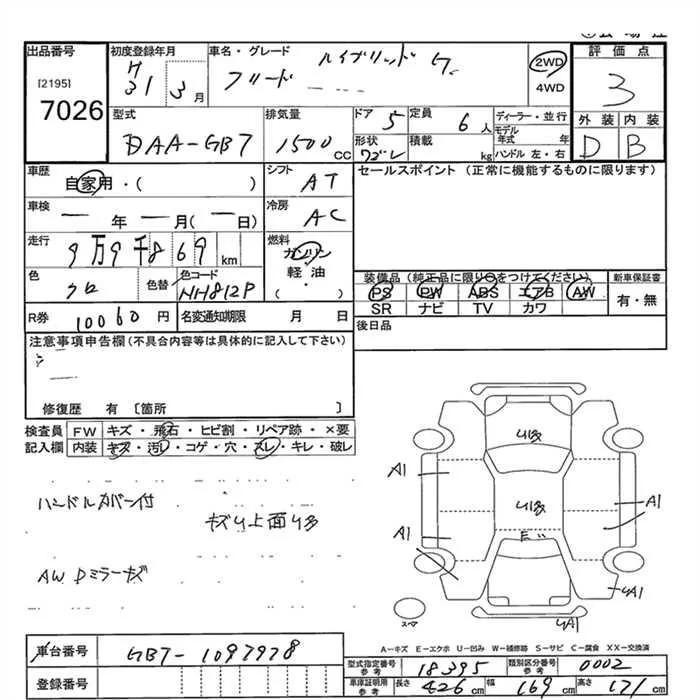 出品番号
[2195]
7026
初度登録年月
H31 3月
車名・グレード
ハイブリッド
フリード
2WD
4WD
評価点
3
外装 内装
D B
型式
DAA-GB7
排気量
1500 CC
ドア 5
定員 6人
形状 ワゴン
積載 kg
ディーラー・並行
モデル年式 年
ハンドル 左・右
車歴
自家用・( )
シフト
AT
セールスポイント (正常に機能するものに限ります)
車検
年 月(ー日)
冷房
AC
走行
9万9千869km
燃料
ガソリン
軽油・
( )
色
クロ
色替
色コード
NH812P
装備品(純正品に限り○をつけてください)
PS PW ABS エアB AW
SR ナビ TV カワ
新車保証書
有・無
R券 10060円
名変通知期限 月 日
後日品
注意事項申告欄(不具合内容等は具体的に記入して下さい)
修復歴 有 〔箇所 〕
検査員記入欄
FW キズ・飛石・ヒビ割・リペア跡・×要
内装 キズ・汚レ・コゲ・穴・スレ・キレ・破レ
ハンドルカバー付
キズU上面U多
AW Dミラーキズ
U多
A1
U多
A1
A1
E
UA1
UA1
スマ
A-キズ E-エクボ U-凹み W-補修跡 S-サビ C-腐食 XX-交換済
車台番号 GB7-1097978
登録番号
型式指定番号 参考 18395
類別区分番号 参考 0002
車庫証明用 参考 長さ 426cm 幅 169cm 高さ 171cm